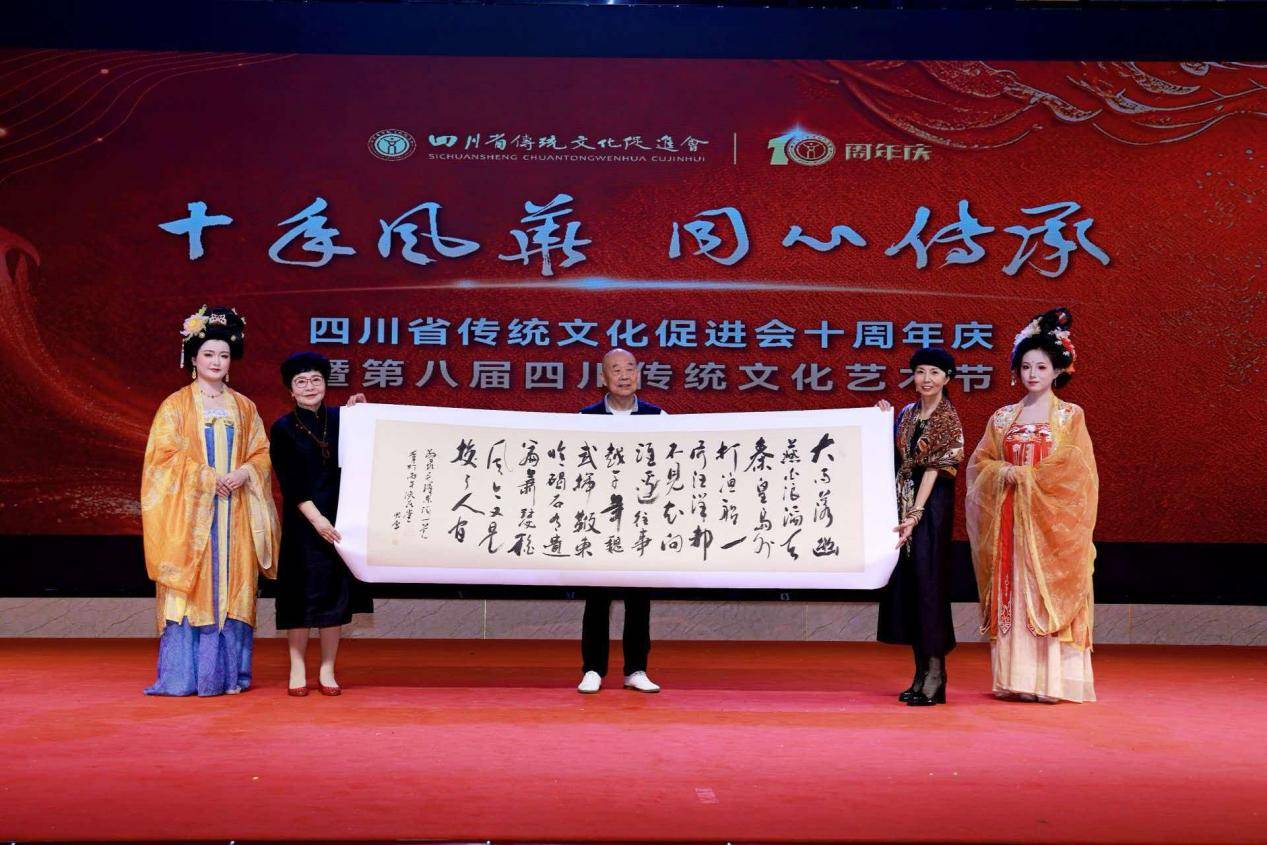 四川省傳统文化促進會
SICHUANSHENG CHUANTONGWENHUA CUJINHUI
10周年庆
十年风华 同心传承
四川省传统文化促进会十周年庆
暨第八届四川传统文化艺术节
大雨落幽
燕白浪滔天
秦皇島外
打渔船一
片汪洋都
不見知向
谁邊往事
越千年魏
武挥鞭東
临碣石有遗
篇萧瑟秋
风今又是
换了人间